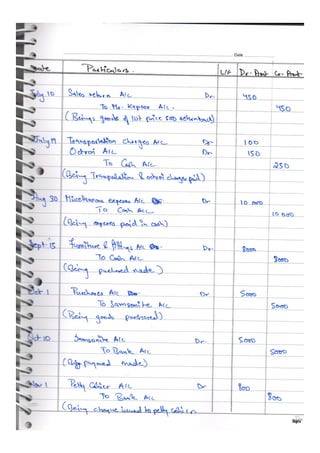 Date
Date Particulars. L/F Dr. Amt Cr. Amt
July 10 Sales return A/c Dr. 450
To Mr. Kapoor A/c. 450
(Being goods of list price 500 returned)
July 19 Transportation charges A/c Dr 100
Octroi A/c Dr 150
To Cash A/c 250
(Being Transportation & octroi charges paid)
Aug 30 Miscellaneous expenses A/c Dr 10 000
To Cash A/c 10 000
(Being expenses paid in cash)
Sept 15 Furniture & fittings A/c Dr. 8000
To Cash A/c 8000
(Being purchased made)
Oct 1 Purchases A/c Dr 5000
To Samsonite A/c 5000
(Being goods purchased)
Oct 10 Samsonite A/c Dr 5000
To Bank A/c 5000
(Being payment made)
Nov 1 Petty Cashier A/c Dr 800
To Bank A/c 800
(Being cheque issued to petty cashier